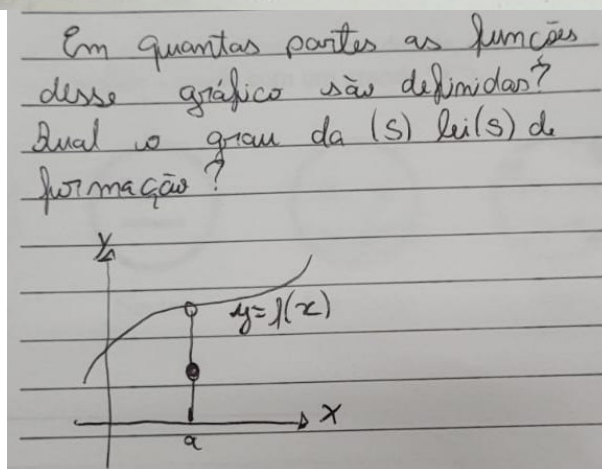 Em quantas partes as funções
desse gráfico são definidas?
Qual o grau da (s) lei(s) de
formação?
y
y=f(x)
x
a